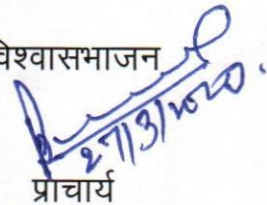 विश्वासभाजन
27/3/2020.
प्राचार्य